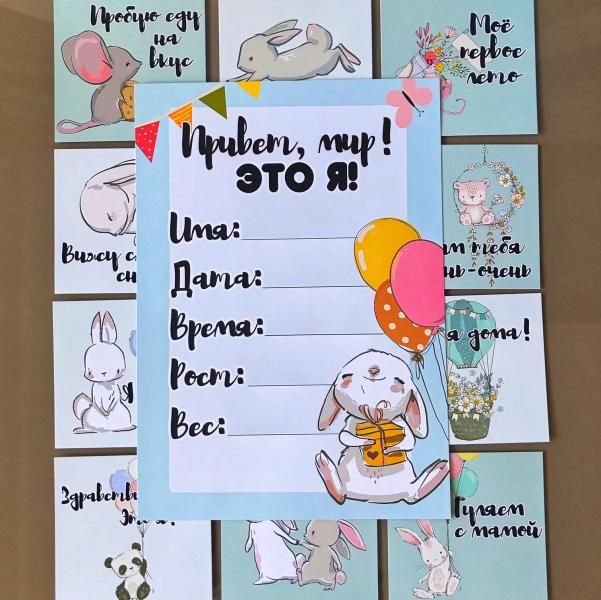 Пробую еду
на
вкус
Моё
первое
лето
Привет, мир!
ЭТО Я!
Имя:
Дата:
Время:
Рост:
Вес:
Вижу
тебя
очень
дома!
Гуляем
с мамой